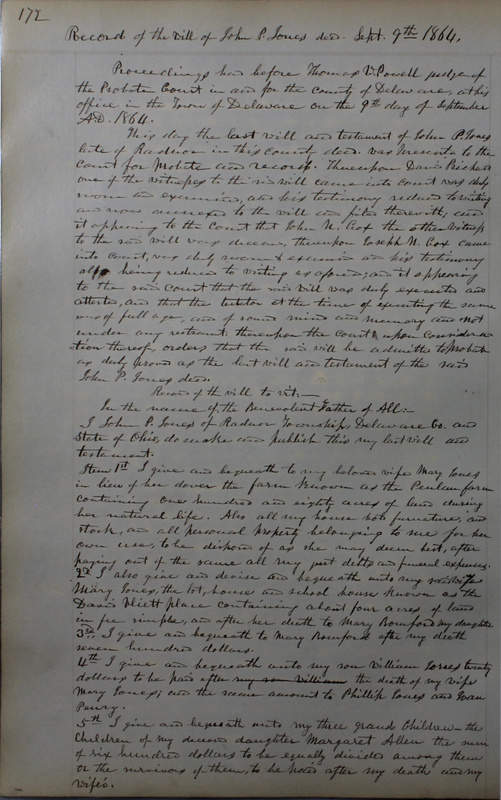 172
Record of the Will of John P. Jones decd. Sept. 9th 1864.
Proceedings had before Thomas W. Powell judge of
the Probate Court in and for the County of Delaware, at his
office in the Town of Delaware on the 9th day of September
A.D. 1864.
This day the last will and testament of John P. Jones
late of Radnor in this County decd. was presented to the
Court for Probate and record. Thereupon David
one of the witnesses to the said will came into Court was duly
sworn and examined, and his testimony reduced to writing
and was annexed to the will and filed therewith, and
it appearing to the Court that John W. Cox the other witness
to the said will was deceased, thereupon Joseph W. Cox came
into Court, was duly sworn & examined and his testimony
also being reduced to writing as aforesd, and it appearing
to the said Court that the said Will was duly executed and
attested, and that the testator at the time of executing the same
was of full age, and of sound mind and memory and not
under any restraint thereupon the Court upon considera-
tion thereof, orders that the said will be admitted to probate
as duly proved as the last will and testament of the said
John P. Jones decd.
Record of the will to wit:—
In the name of the Benevolent Father of All:—
I John P. Jones of Radnor Township, Delaware Co. and
State of Ohio, do make and publish this my last will and
testament.
Item 1st I give and bequeath to my beloved wife Mary Jones
in lieu of her dower the farm known as the Penlan farm
containing one hundred and eighty acres of land during
her natural life. Also all my house hold furniture, and
stock, and all personal property belonging to me for her
own use, to be disposed of as she may deem best, after
paying out of the same all my just debts and funeral expenses.
2d I also give and devise and bequeath unto my said wife
Mary Jones, the lot, house and school house known as the
David Vliett place containing about four acres of land
in fee simple, and after her death to Mary Bomford my daughter
3rd. I give and bequeath to Mary Bomford after my death
seven hundred dollars.
4th I give and bequeath unto my son William Jones twenty
dollars to be paid after my son William the death of my wife
Mary Jones; and the same amount to Phillip Jones and Evan
Penry.
5th I give and bequeath unto my three grand Children—the
Children of my deceased daughter Margaret Allen the sum
of six hundred dollars to be equally divided among them
or the survivors of them, to be paid after my death and my
wife's.